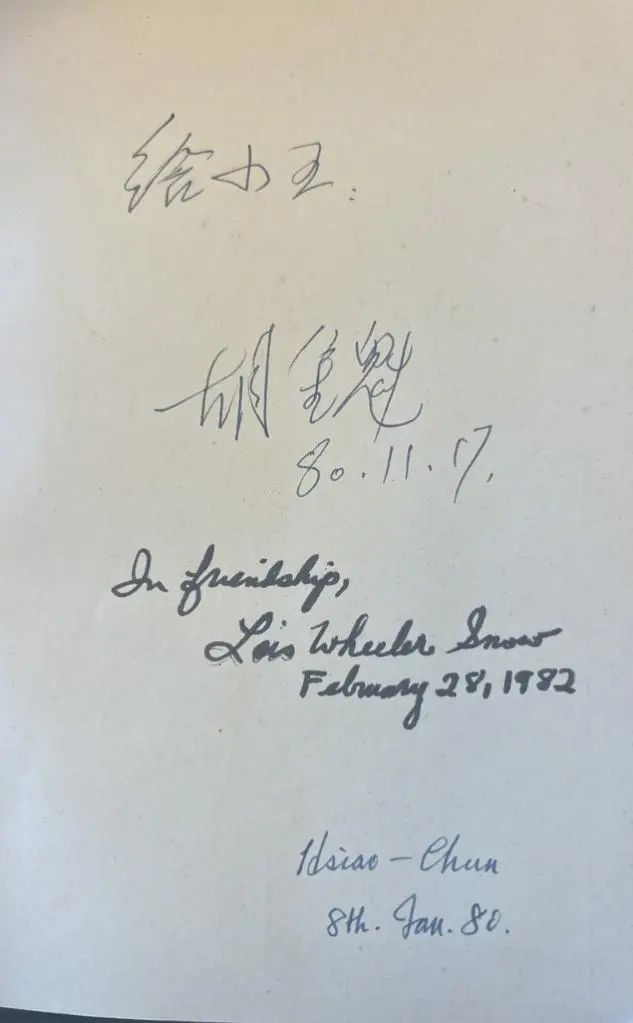 给小王:
胡金魁
80.11.17.
In friendship,
Lois Wheeler Snow
February 28, 1982
Hsiao-Chun
8th. Jan. 80.